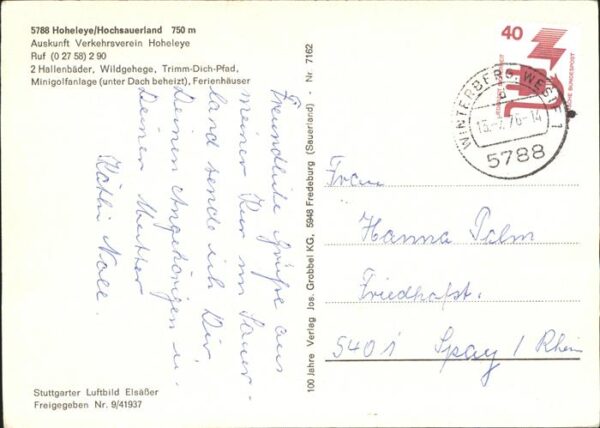 5788 Hoheleye/Hochsauerland 750 m
Auskunft Verkehrsverein Hoheleye
Ruf (0 27 58) 2 90
2 Hallenbäder, Wildgehege, Trimm-Dich-Pfad,
Minigolfanlage (unter Dach beheizt), Ferienhäuser
Freundliche Grüße aus
meiner Kur im Sauer-
land sende ich Dir,
Deinen Angehörigen u.
Deiner Mutter
Käthi Noll.
Stuttgarter Luftbild Elsäßer
Freigegeben Nr. 9/41937
100 Jahre Verlag Jos. Grobbel KG, 5948 Fredeburg (Sauerland) - Nr. 7162
40
DEUTSCHE BUNDESPOST
WINTERBERG, WESTF 1
d
-14
5788
Frau
Hanna Palm
Friedhofst.
5401 Spay / Rhein